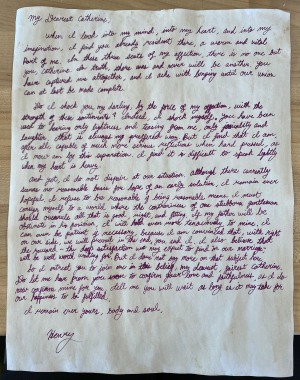 My Dearest Catherine,
When I look into my mind, into my heart, and into my
imagination, I find you already resident there, a warm and vital
part of me. In these three seats of my affection, there is no one but
you, Catherine. In truth, there was and never will be another. You
have captured me altogether, and I ache with longing until our union
can at last be made complete.
Do I shock you, my darling, by the force of my affection, with the
strength of these sentiments? Indeed, I shock myself. You have been
used to having only lightness and teasing from me, only
that is always my preferred way. But I find that I am
after all capable of much more serious reflection when hard pressed, as
I now am by this separation. I find it so difficult to speak lightly
when my heart is heavy.
And yet, I do not despair at our situation, although there currently
seems no reasonable basis for hope of an early solution. I remain ever
hopeful. I refuse to be reasonable if being reasonable means I must
resign myself to a world where the of one stubborn gentleman
should overrule all that is good, right, and fitting. If my father will be
obstinate in his position, I will hold even more tenaciously to mine. I
can even be patient if necessary, because I am convinced that, with right
on our side, we will prevail in the end, you and I. I also believe that
the present the deep satisfaction we may expect to find in our marriage
will be well worth waiting for, but I dare not say more on that subject here.
So I entreat you to join me in this belief, my dearest, fairest Catherine.
Do let me hear from you soon to confirm your love and faithfulness, as I do
now confirm mine for you. Tell me you will wait as long as it may take for
our happiness to be fulfilled.
I remain ever yours, body and soul,
Henry